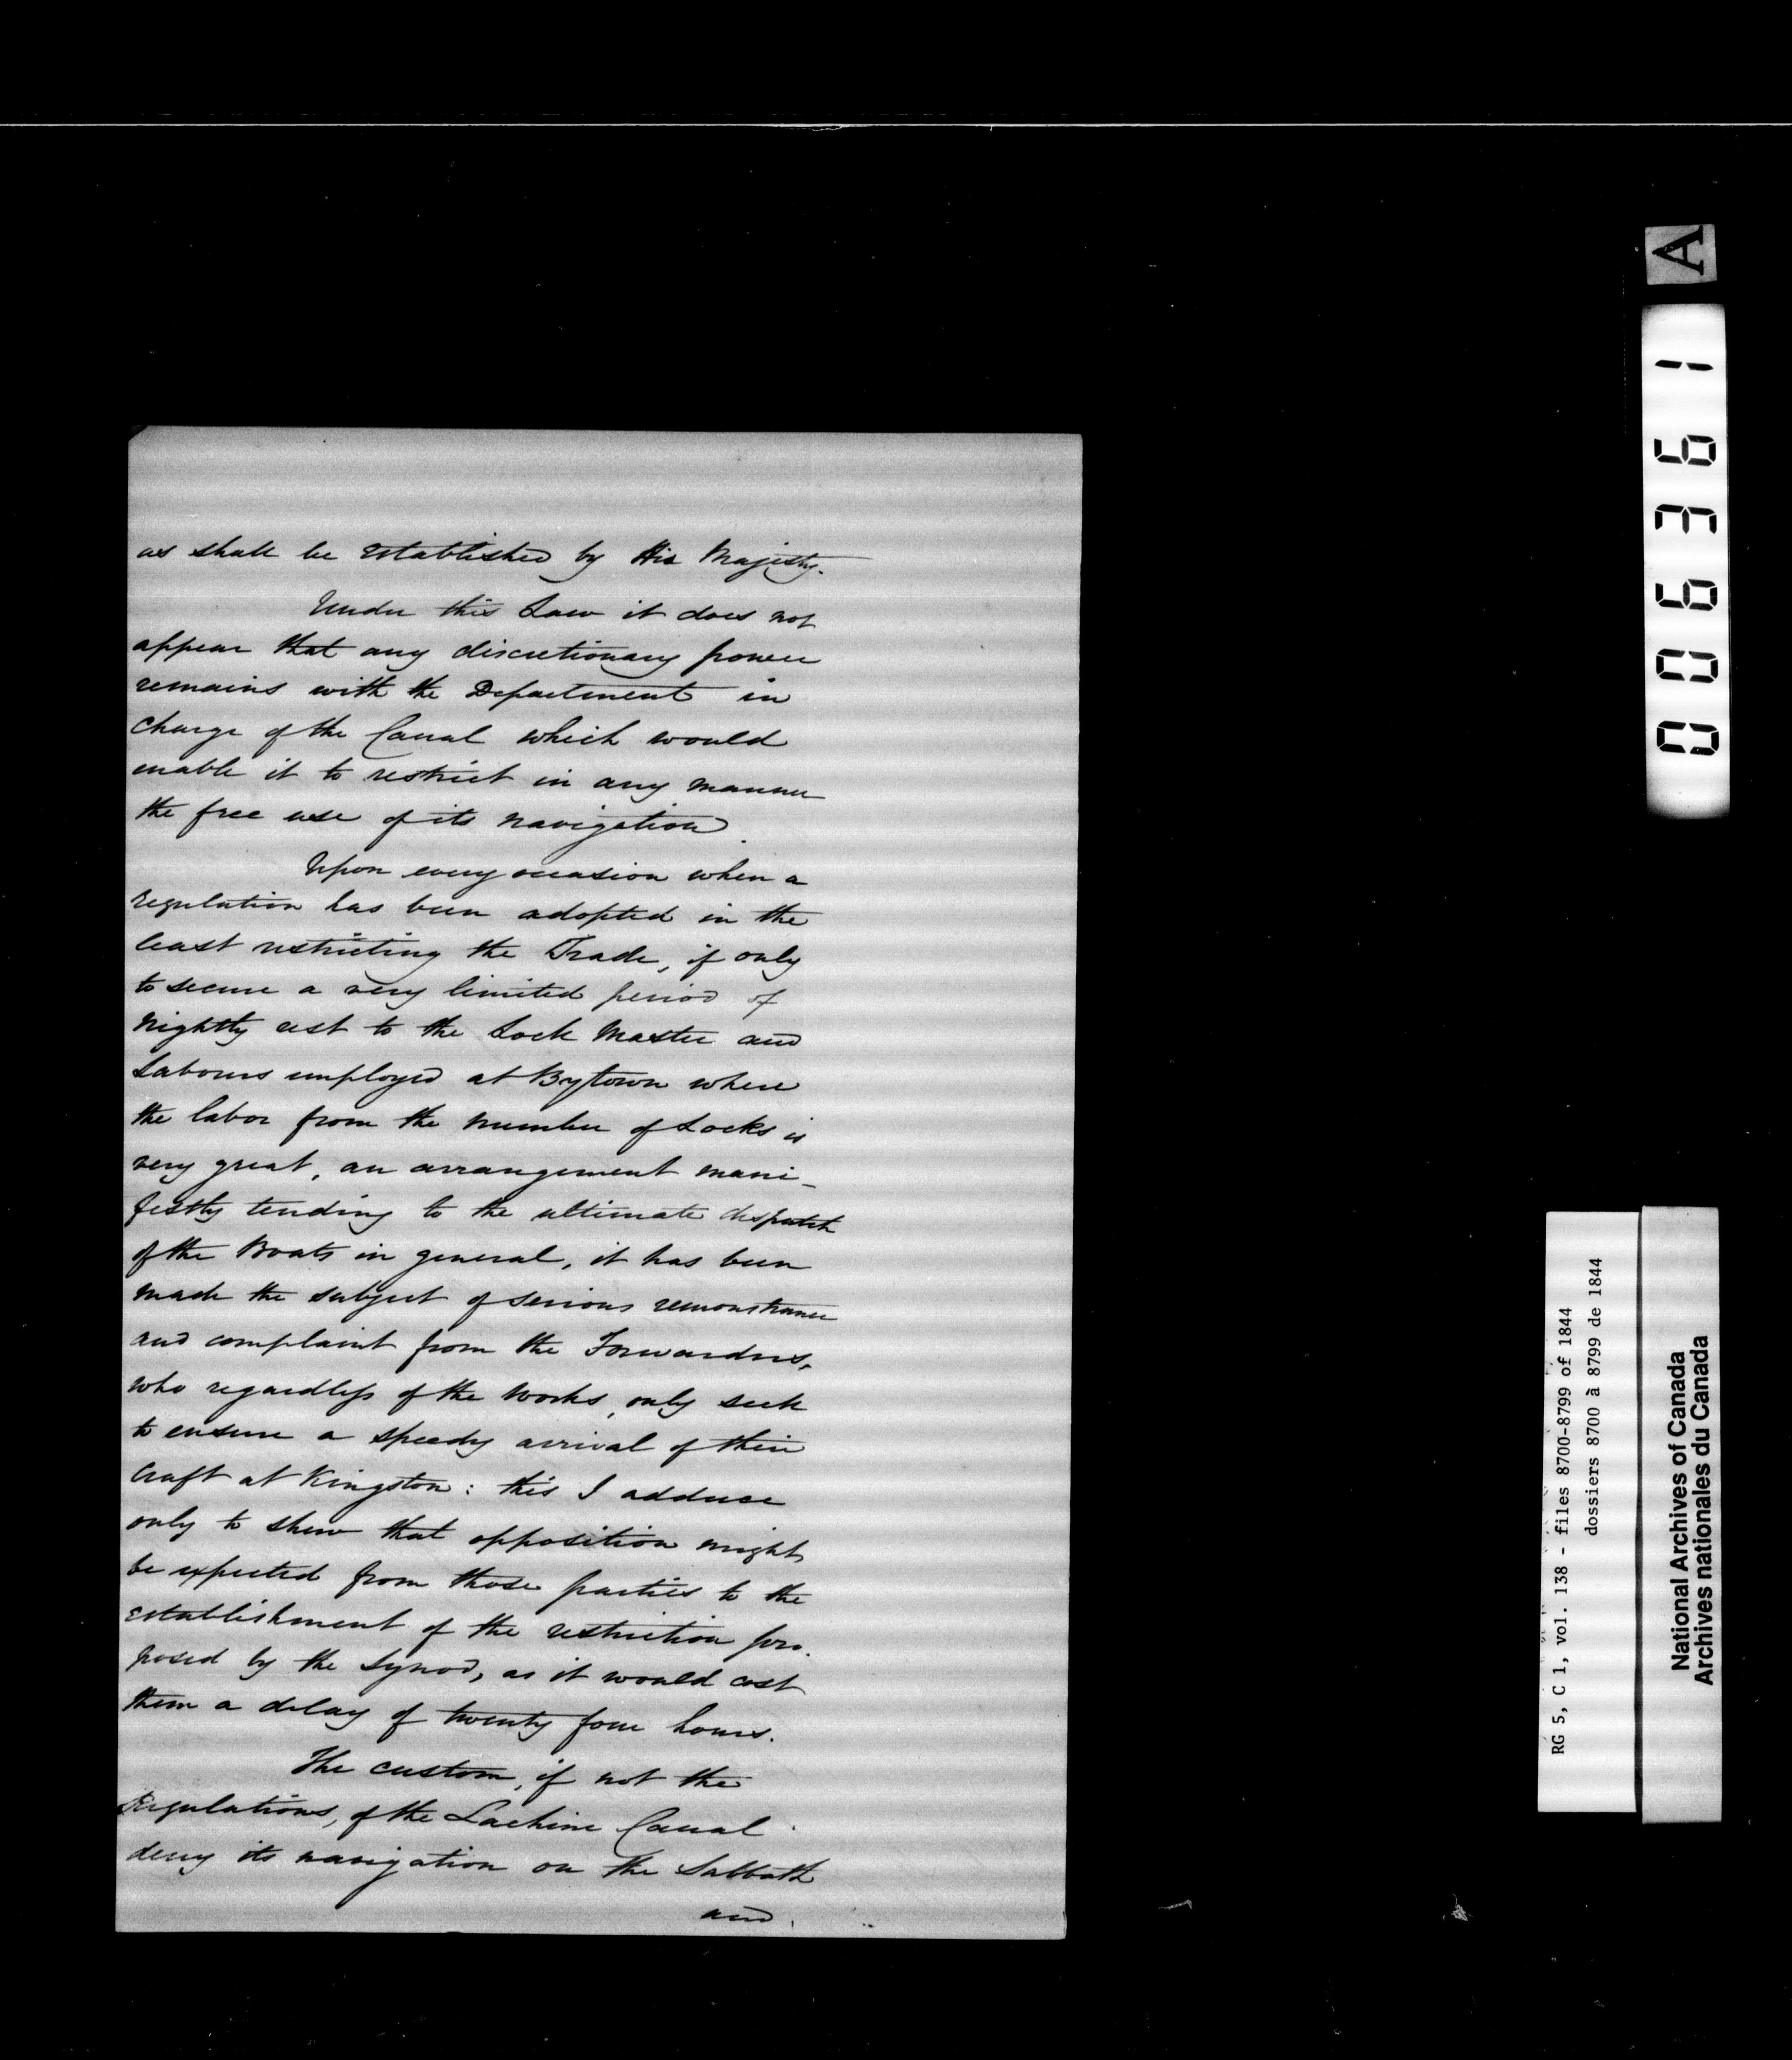 as shall be established by His Majesty.
Under this Law it does not
appear that any discretionary power
remains with the Department in
charge of the Canal which would
enable it to restrict in any manner
the free use of its navigation.
Upon every occasion when a
regulation has been adopted in the
least restricting the Trade, if only
to secure a very limited period of
nightly rest to the Lock Master and
Labourers employed at Bytown where
the labor from the number of Locks is
very great, an arrangement mani-
festly tending to the ultimate dispatch
of the Boats in general, it has been
made the subject of serious remonstrance
and complaint from the Forwarders,
who regardless of the Works, only seek
to ensure a speedy arrival of their
craft at Kingston: this I adduce
only to shew that opposition might
be expected from those parties to the
establishment of the restriction pro-
posed by the Synod, as it would cost
them a delay of twenty four hours.
The custom, if not the
Regulations, of the Lachine Canal
deny its navigation on the Sabbath
and
A
006361
RG 5, C 1, vol. 138 - files 8700-8799 of 1844
dossiers 8700 à 8799 de 1844
National Archives of Canada
Archives nationales du Canada